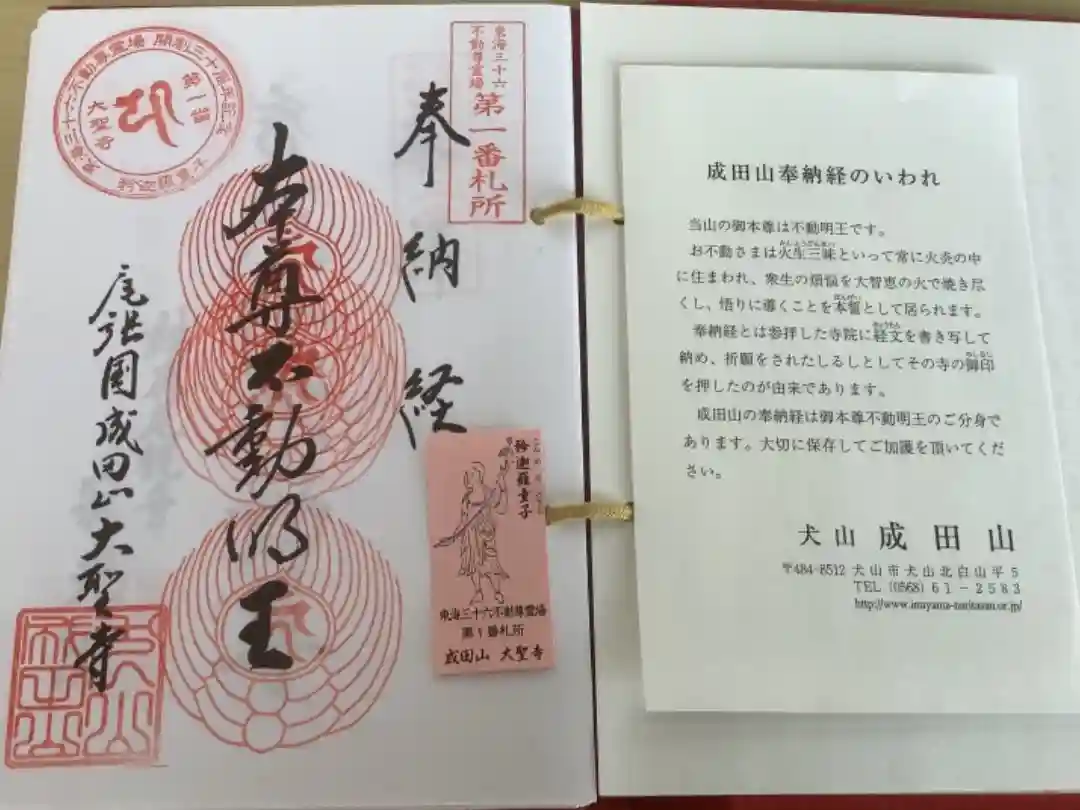 東海三十六
不動尊霊場
第一番札所
奉納経
本尊不動明王
尾張国成田山大聖寺
東海三十六不動尊霊場 開創三十周年記念
第一番
大聖寺
矜迦羅童子
矜迦羅童子
東海三十六不動尊霊場
第1番札所
成田山 大聖寺
成田山奉納経のいわれ
当山の御本尊は不動明王です。
お不動さまは火生三昧といって常に火炎の中
に住まわれ、衆生の煩悩を大智恵の火で焼き尽
くし、悟りに導くことを本誓として居られます。
奉納経とは参拝した寺院に経文を書き写して
納め、祈願をされたしるしとしてその寺の御印
を押したのが由来であります。
成田山の奉納経は御本尊不動明王のご分身で
あります。大切に保存してご加護を頂いてくだ
さい。
犬山 成田山
〒484-8512 犬山市犬山北白山平5
TEL (0568) 61-2583
http://www.inuyama-naritasan.or.jp/